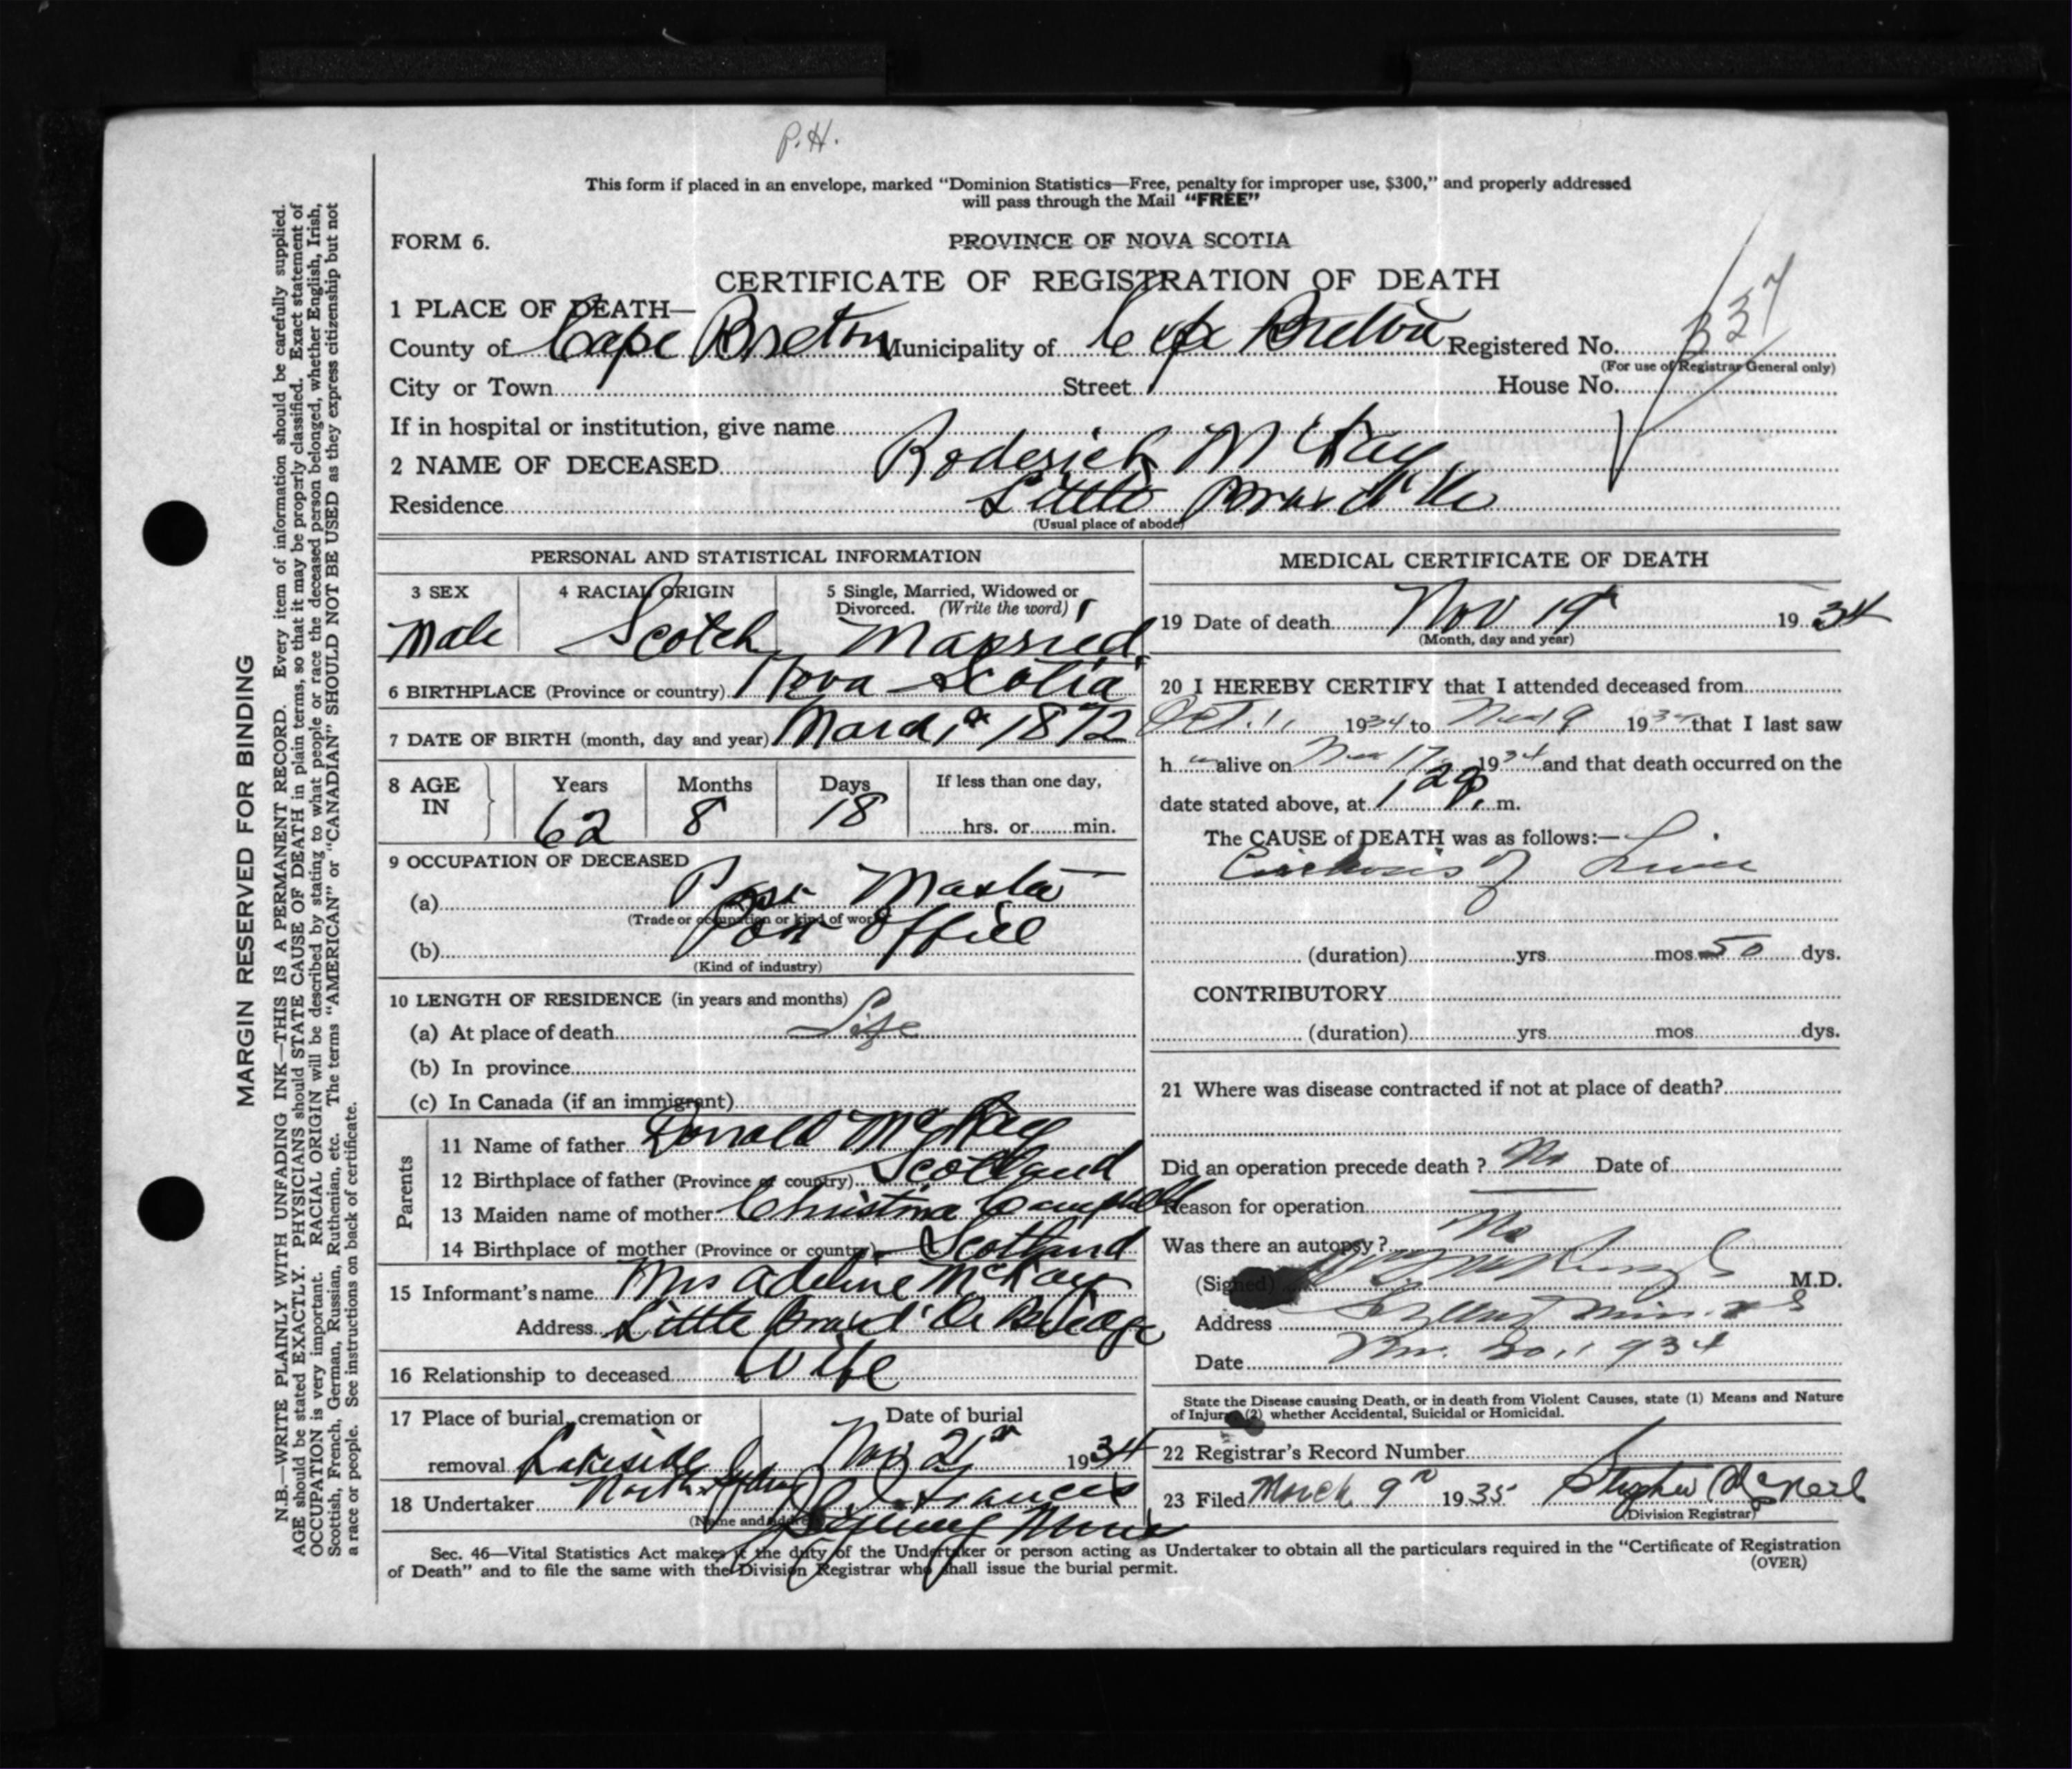 P.H.
This form if placed in an envelope, marked “Dominion Statistics—Free, penalty for improper use, $300,” and properly addressed
will pass through the Mail “FREE”
FORM 6.
PROVINCE OF NOVA SCOTIA
CERTIFICATE OF REGISTRATION OF DEATH
1 PLACE OF DEATH—
County of Cape Breton Municipality of Cape Breton Registered No. 337
(For use of Registrar General only)
City or Town Street House No.
If in hospital or institution, give name
2 NAME OF DECEASED Roderick McKay
Residence Little Bras d'Or
(Usual place of abode)
PERSONAL AND STATISTICAL INFORMATION
3 SEX 4 RACIAL ORIGIN 5 Single, Married, Widowed or
Divorced. (Write the word)
Male Scotch Married
6 BIRTHPLACE (Province or country) Nova Scotia
7 DATE OF BIRTH (month, day and year) March 1st 1872
8 AGE IN Years Months Days If less than one day,
62 8 18 hrs. or min.
9 OCCUPATION OF DECEASED
(a) Post Master
(Trade or occupation or kind of work)
(b) Post Office
(Kind of industry)
10 LENGTH OF RESIDENCE (in years and months)
(a) At place of death Life
(b) In province
(c) In Canada (if an immigrant)
Parents
11 Name of father Donald McKay
12 Birthplace of father (Province or country) Scotland
13 Maiden name of mother Christina Campbell
14 Birthplace of mother (Province or country) Scotland
15 Informant's name Mrs Adeline McKay
Address Little Bras d'Or Bridge
16 Relationship to deceased Wife
17 Place of burial, cremation or Date of burial
removal Lakeside Nov 21st 1934
North Sydney
18 Undertaker J. Francis
(Name and address)
Sydney Mines
MEDICAL CERTIFICATE OF DEATH
19 Date of death Nov 19th 1934
(Month, day and year)
20 I HEREBY CERTIFY that I attended deceased from
Oct. 1, 1934 to Nov 19 1934 that I last saw
h alive on Nov 17 1934 and that death occurred on the
date stated above, at m.
The CAUSE of DEATH was as follows:—
Cirrhosis of Liver
(duration) yrs mos 50 dys.
CONTRIBUTORY
(duration) yrs mos dys.
21 Where was disease contracted if not at place of death?
Did an operation precede death ? No Date of
Reason for operation
Was there an autopsy ? No
(Signed) M.D.
Address Sydney Mines
Date Nov. 20, 1934
State the Disease causing Death, or in death from Violent Causes, state (1) Means and Nature
of Injury (2) whether Accidental, Suicidal or Homicidal.
22 Registrar's Record Number
23 Filed March 9th 1935 Stephen McNeil
(Division Registrar)
Sec. 46—Vital Statistics Act makes it the duty of the Undertaker or person acting as Undertaker to obtain all the particulars required in the “Certificate of Registration
of Death” and to file the same with the Division Registrar who shall issue the burial permit. (OVER)
MARGIN RESERVED FOR BINDING
N.B.—WRITE PLAINLY WITH UNFADING INK—THIS IS A PERMANENT RECORD. Every item of information should be carefully supplied.
AGE should be stated EXACTLY. PHYSICIANS should STATE CAUSE OF DEATH in plain terms, so that it may be properly classified. Exact statement of
OCCUPATION is very important. RACIAL ORIGIN will be described by stating to what people or race the deceased person belonged, whether English, Irish,
Scottish, French, German, Russian, Ruthenian, etc. The terms “AMERICAN” or “CANADIAN” SHOULD NOT BE USED as they express citizenship but not
a race or people. See instructions on back of certificate.